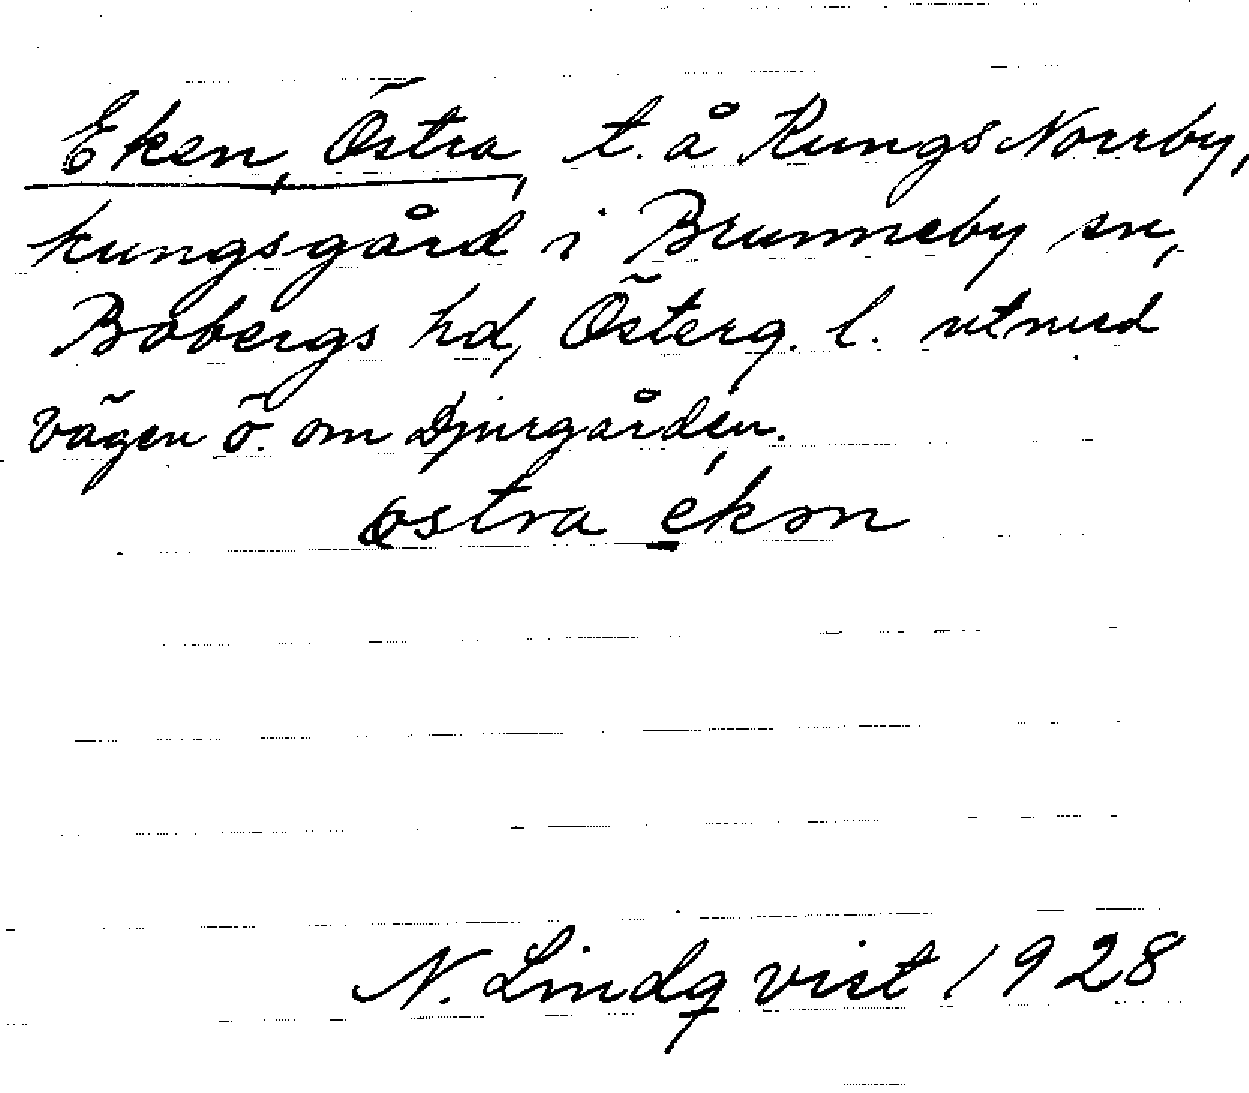 Eken, Östra, t. å Kungs Norrby,
kungsgård i Brunneby sn,
Bobergs hd, Österg. l. utmed
vägen ö. om Djurgården.
östra ekən
N. Lindqvist 1928